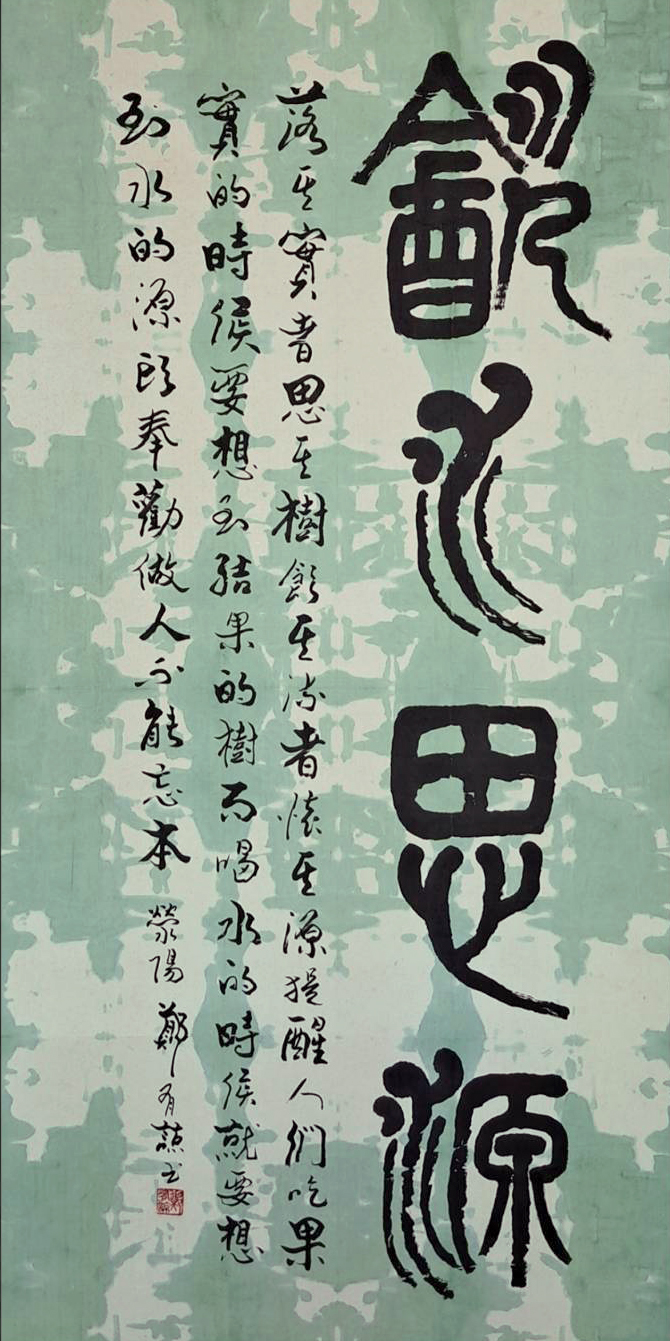 飲水思源
落其實者思其樹飲其流者懷其源提醒人們吃果
實的時候要想到結果的樹而喝水的時候就要想
到水的源頭奉勸做人不能忘本 滎陽 鄭有諒书